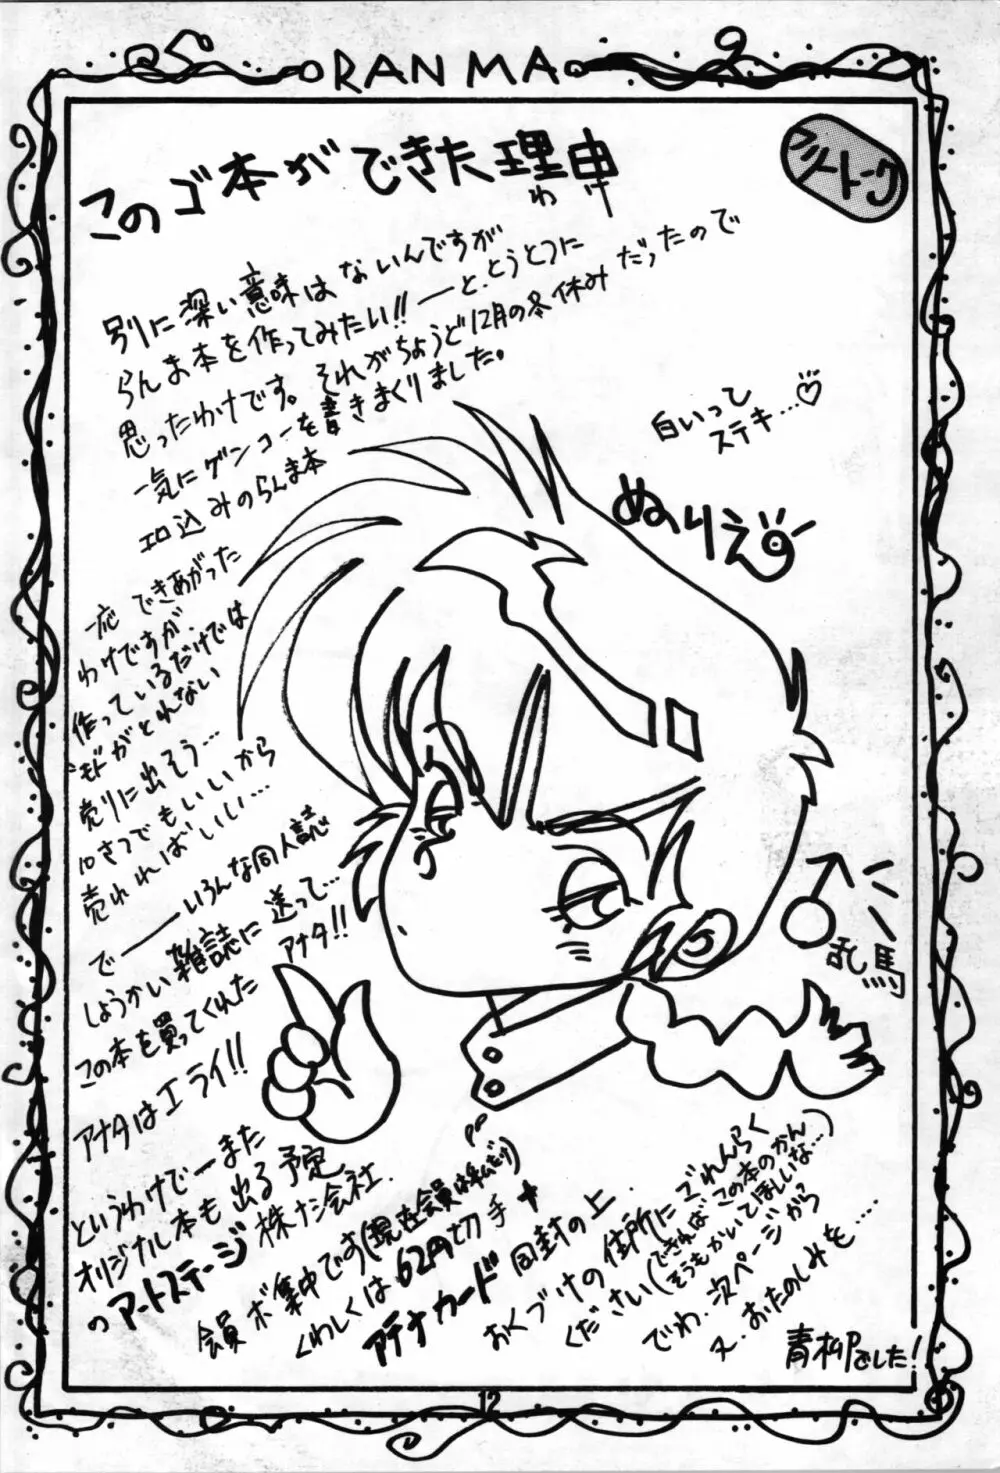 RANMA
フリートーク
このゴ本ができた理由
わけ
別に深い意味はないんですが
らんま本を作ってみたい!!ーと、とうとつに
思ったわけです。それがちょうど12月の冬休みだったので
一気にゲンコーを書きまくりました。
エロ込みのらんま本
白いって
ステキ…♡
ぬりえ
一応 できあがった
わけですが、
作っているだけでは
モトがとれない
売りに出そう…
10さつでもいいから
売れればいい…
でーーいろんな同人誌
しょうかい雑誌に送って…
アナタ!!
この本を買ってくれた
アナタはエライ!!
♂
乱馬
というわけでーまた
オリジナル本も出る予定
株式会社
のアートステージ
会員ボ集中です(現在会員は私ひとり)
くわしくは62円切手+
アテナカード同封の上、
おくづけの住所にごれんらく
ください(できればこの本のかん
そうもかいてほしいな…)
でわ、次ページから
おたのしみを……
青柳でした!
12